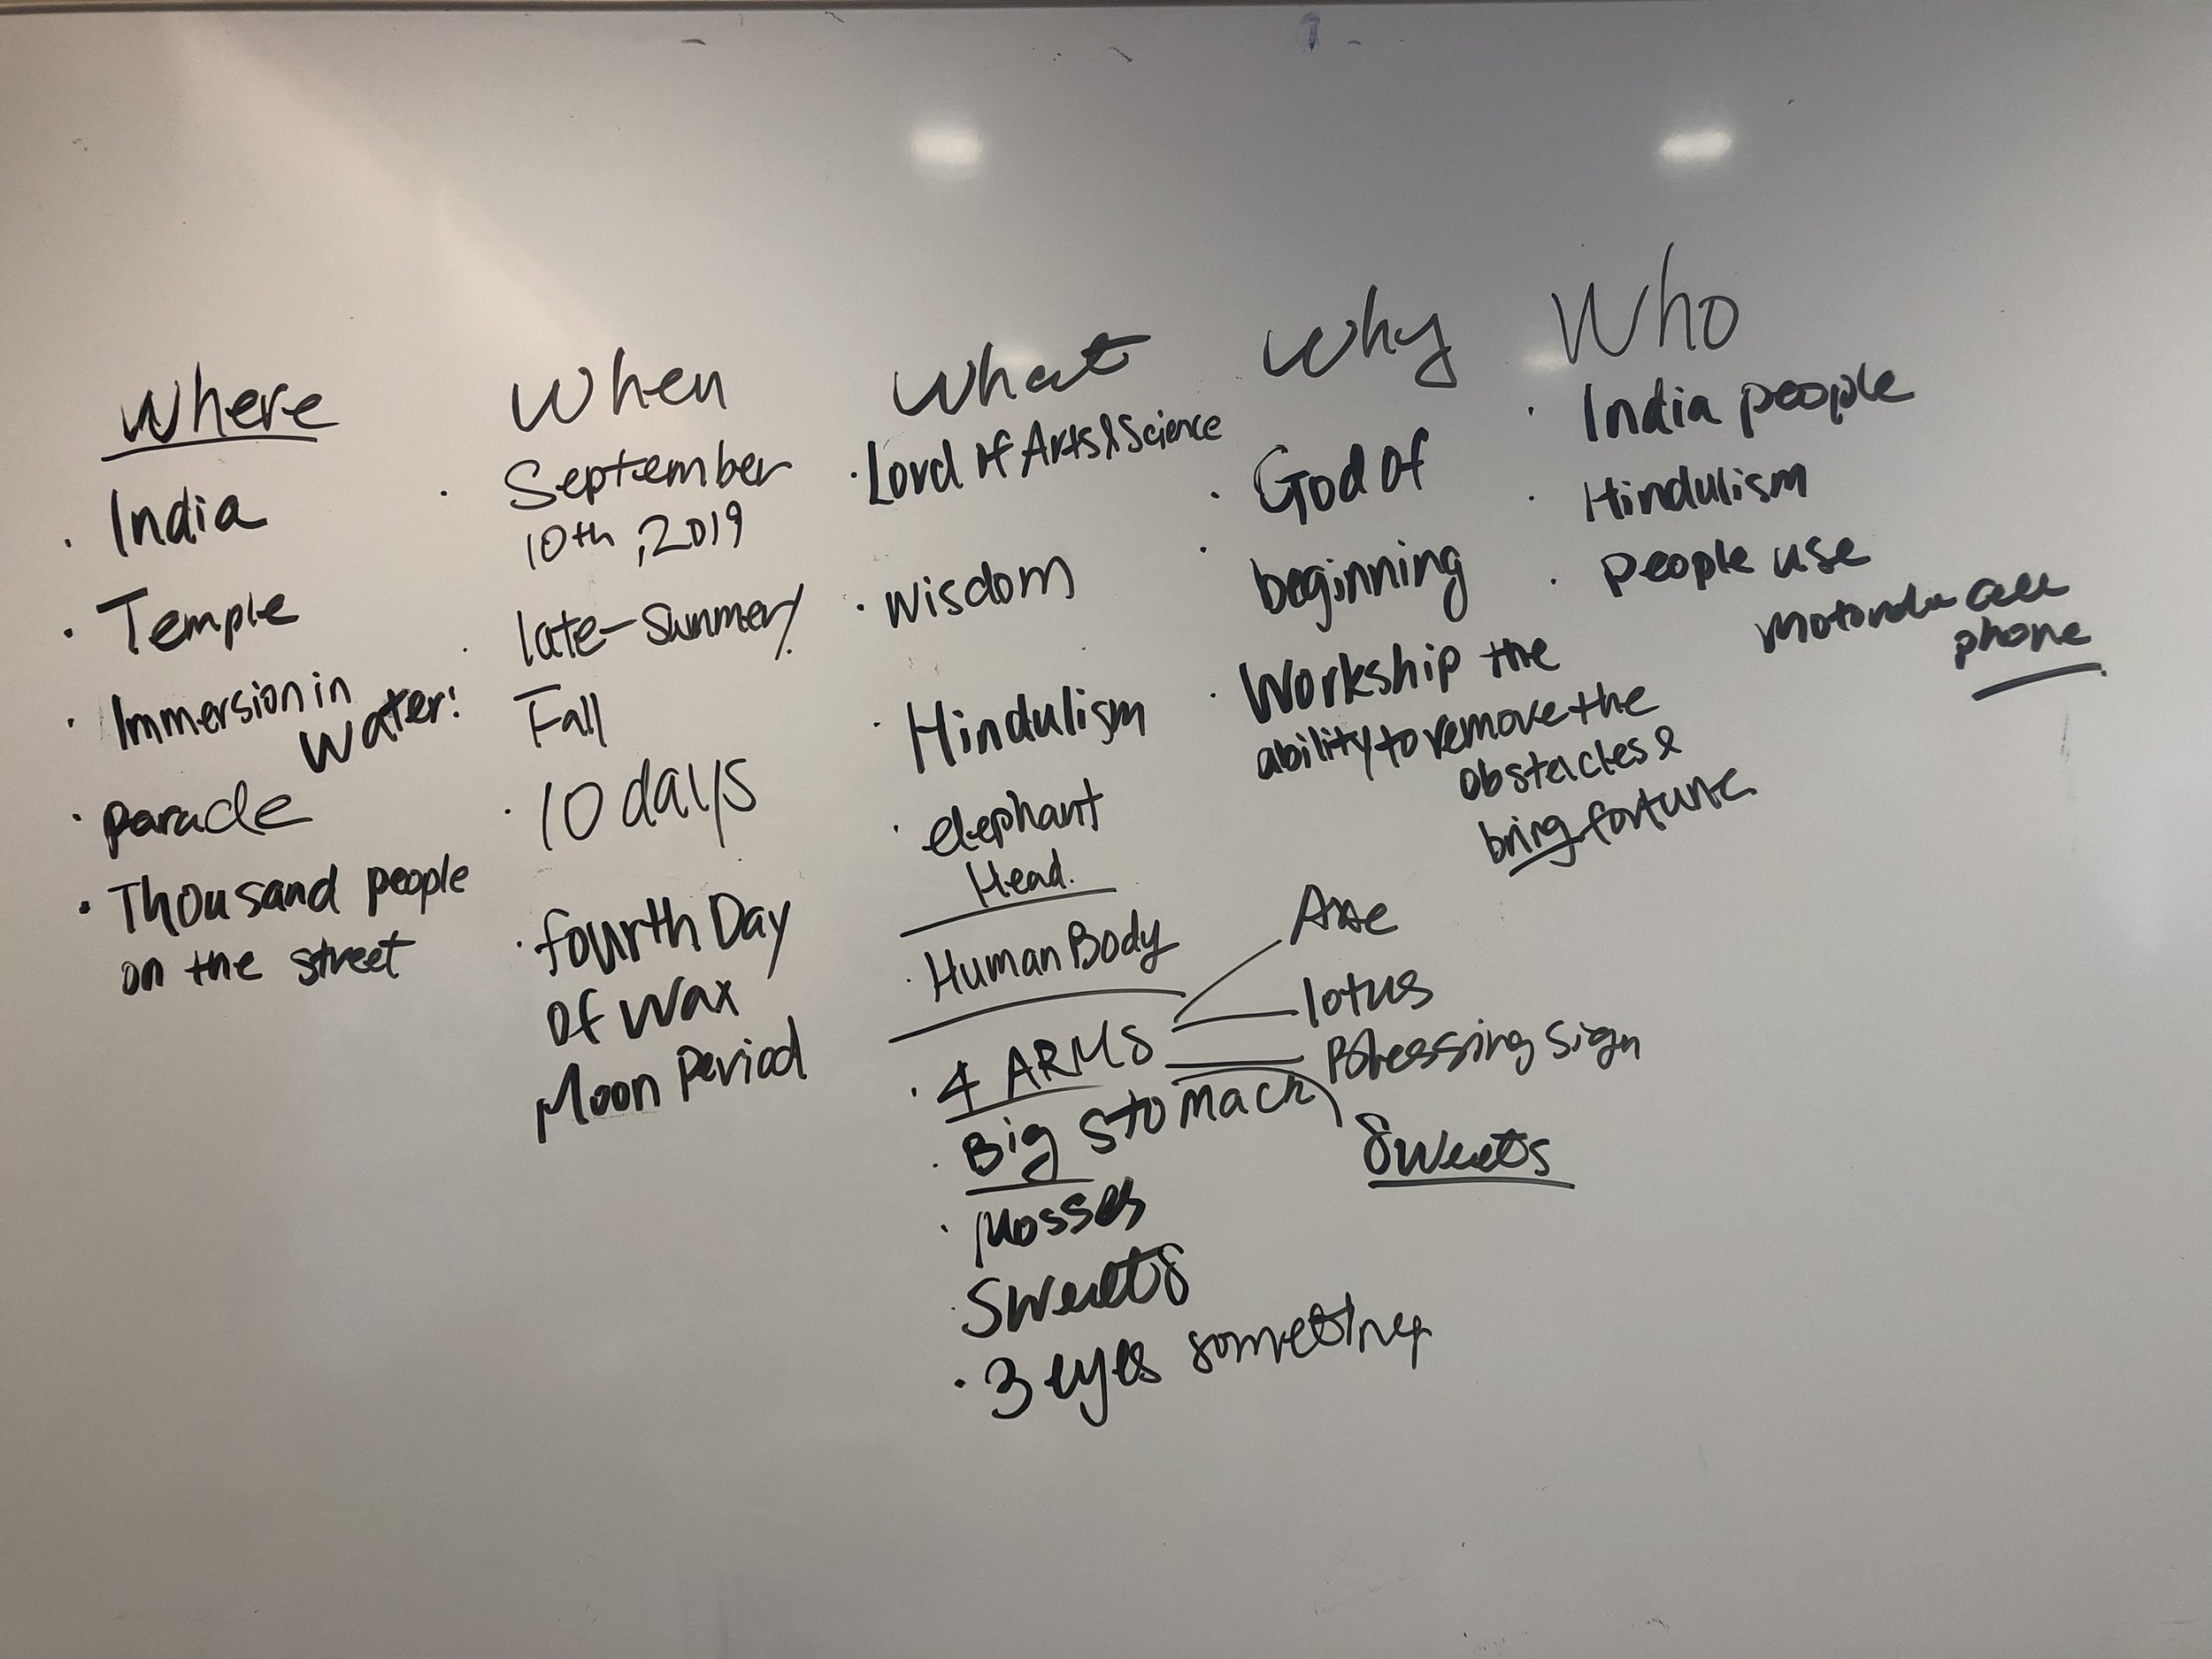 Where
· India
· Temple
· Immersion in
Water!
· parade
· Thousand people
on the street
When
· September
10th, 2019
· late-Summer/
Fall
· 10 days
· fourth Day
of Wax
Moon Period
What
· Lord of Arts & Science
· Wisdom
· Hindulism
· elephant
Head.
· Human Body
· 4 ARMS
Axe
lotus
Blessing Sign
Sweets
· Big Stomach
· Mosses
· Sweets
· 3 eyes something
Why
· God of
· beginning
· Workship the
ability to remove the
obstacles &
bring fortune
Who
· India people
· Hindulism
· People use
Motorola cell
phone